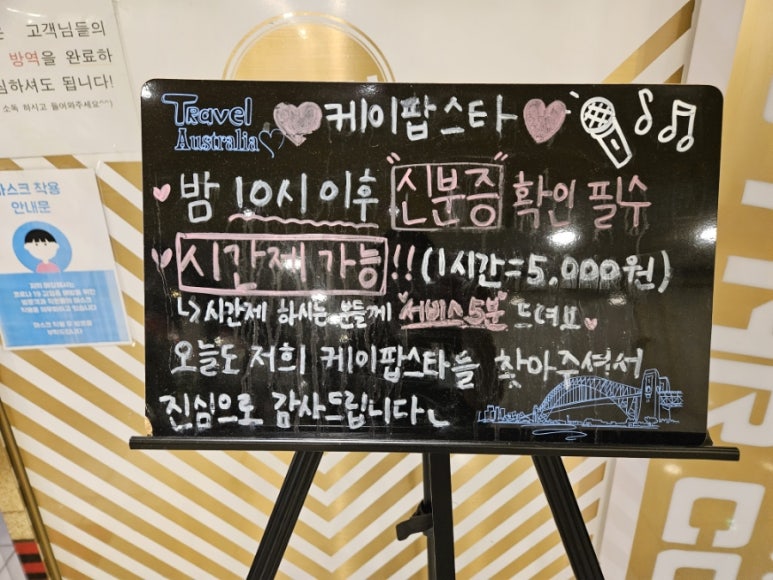 고객님들의
방역을 완료하
심하셔도 됩니다!
소독 하시고 들어와주세요^^)
마스크 착용
안내문
Travel
Australia
케이팝스타
밤 10시 이후 "신분증" 확인 필수
시간제 가능!! (1시간=5,000원)
↳ 시간제 하시는 분들께 "서비스 5분" 드려요
오늘도 저희 케이팝스타를 찾아주셔서
진심으로 감사드립니다